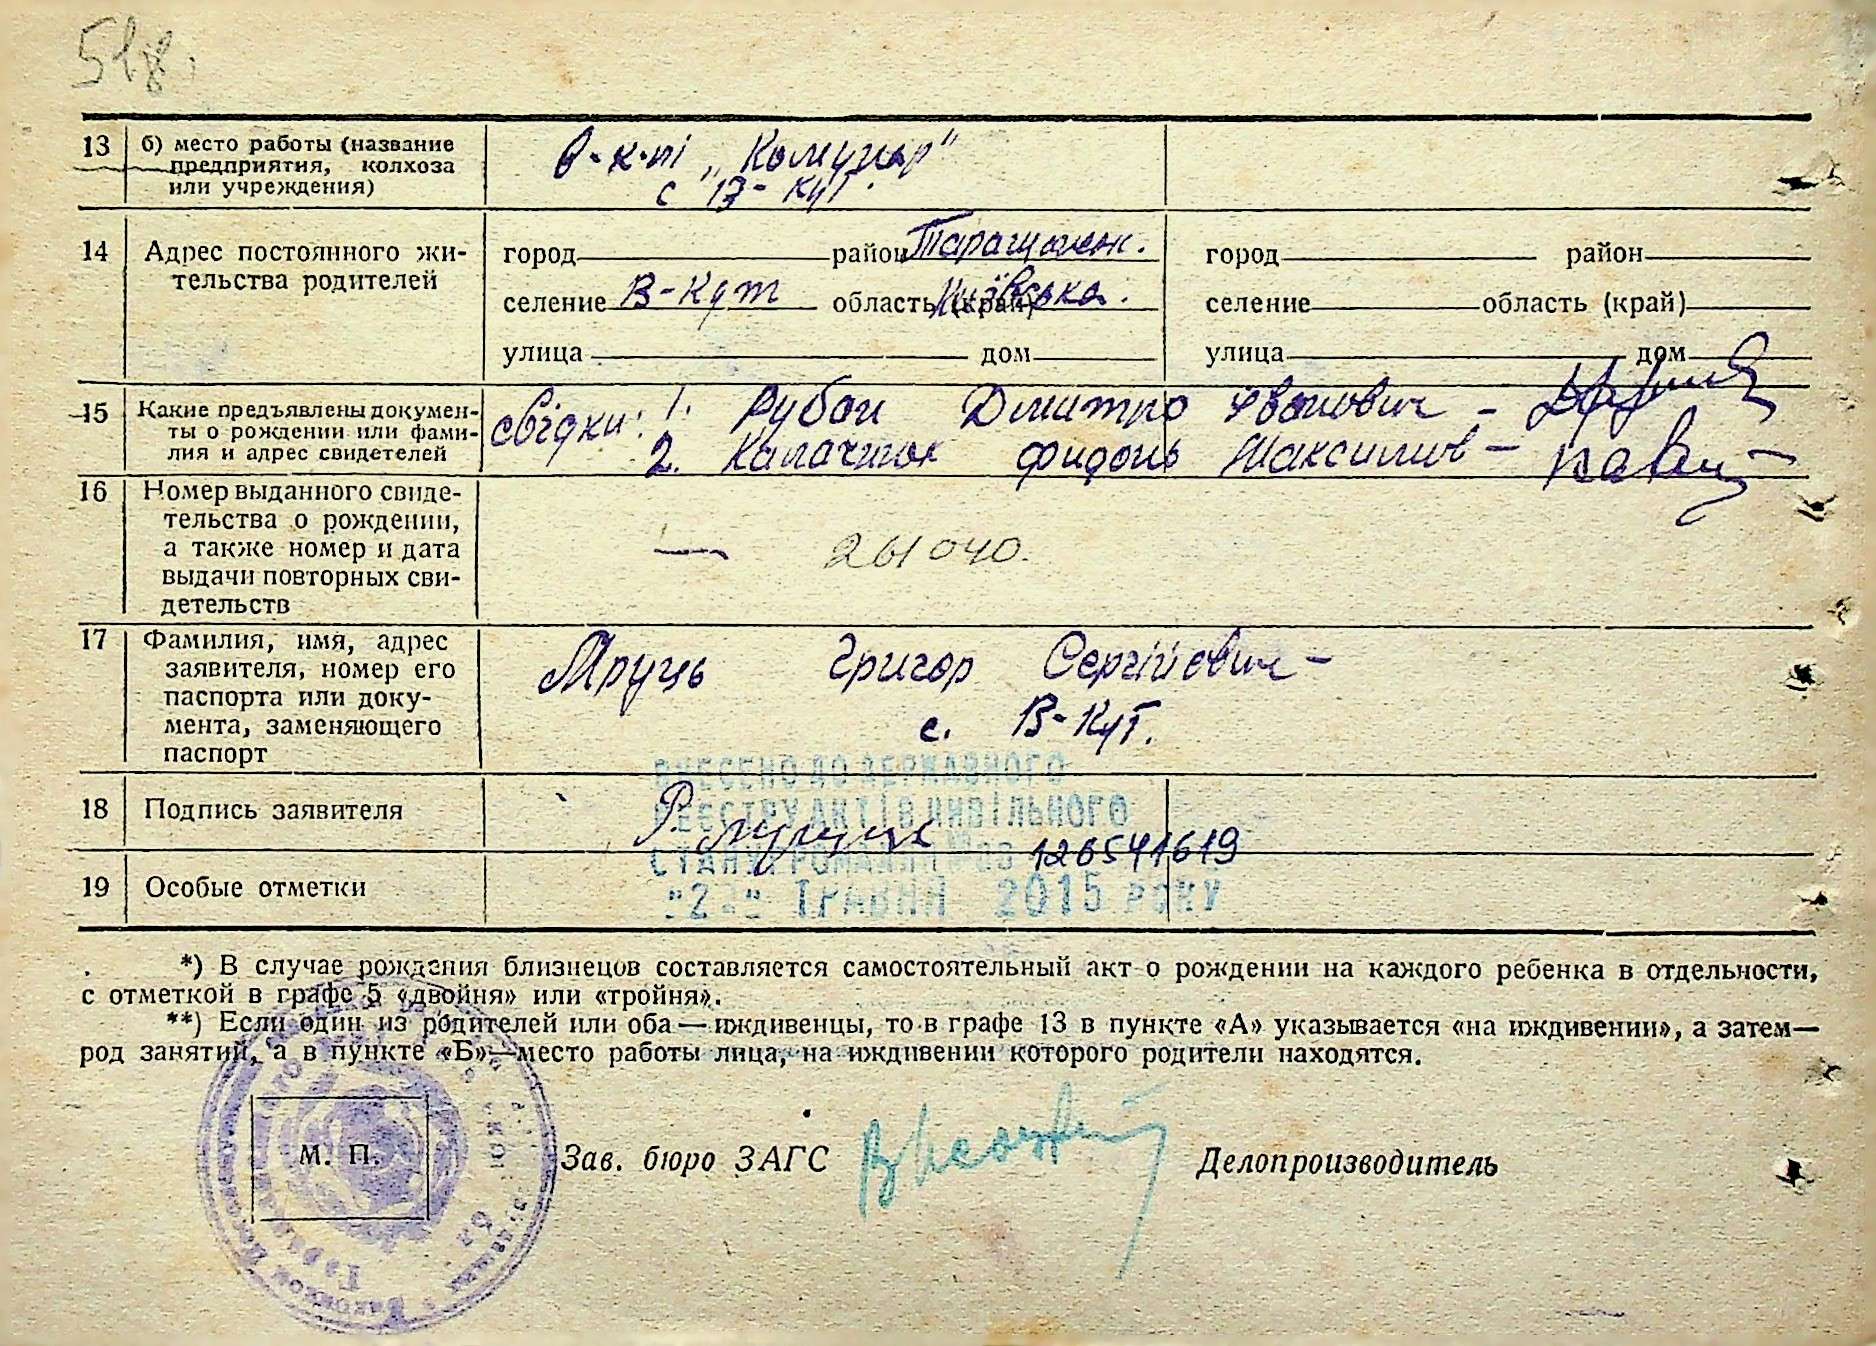 13 б) место работы (название
предприятия, колхоза
или учреждения)
в-к-ті „Комунар"
с В-Кут.
14 Адрес постоянного жи-
тельства родителей
город район Таращанськ. город район
селение В-Кут область (край) Київська. селение область (край)
улица дом улица дом
15 Какие предъявлены докумен-
ты о рождении или фами-
лия и адрес свидетелей
свідки: 1. Рубан Дмитро Іванович -
2. Калачнюк Фидонь Максимов -
16 Номер выданного свиде-
тельства о рождении,
а также номер и дата
выдачи повторных сви-
детельств
261040.
17 Фамилия, имя, адрес
заявителя, номер его
паспорта или доку-
мента, заменяющего
паспорт
Мруць Григор Сергійович -
с. В-Кут.
ВНЕСЕНО ДО ДЕРЖАВНОГО
РЕЄСТРУ АКТІВ ЦИВІЛЬНОГО
СТАНУ ГРОМАДЯН № 00126541619
ТРАВНЯ 2015 РОКУ
18 Подпись заявителя
19 Особые отметки
*) В случае рождения близнецов составляется самостоятельный акт о рождении на каждого ребенка в отдельности,
с отметкой в графе 5 «двойня» или «тройня».
**) Если один из родителей или оба — иждивенцы, то в графе 13 в пункте «А» указывается «на иждивении», а затем—
род занятий, а в пункте «Б»—место работы лица, на иждивении которого родители находятся.
М. П.
Зав. бюро ЗАГС Делопроизводитель